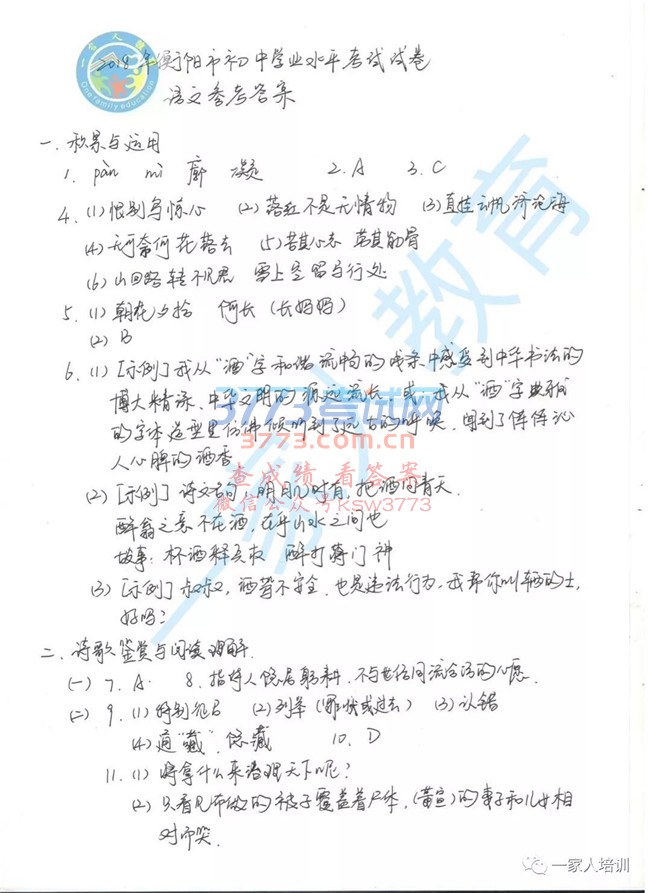 2018年衡阳市初中学业水平考试试卷
语文参考答案
一、积累与运用
1. pàn mì 廓 凝 2. A 3. C
4. (1) 恨别鸟惊心 (2) 落红不是无情物 (3) 直挂云帆济沧海
(4) 无可奈何花落去 (5) 苦其心志 劳其筋骨
(6) 山回路转不见君 雪上空留马行处
5. (1) 朝花夕拾 阿长（长妈妈）
(2) B
6. (1) [示例] 我从“酒”字和谐流畅的线条中感受到中华书法的
博大精深、中华文明的源远流长。或：我从“酒”字典雅
的字体造型里仿佛倾听到了远古的呼唤，闻到了阵阵沁
人心脾的酒香
(2) [示例] 诗文名句：明月几时有，把酒问青天
醉翁之意不在酒，在乎山水之间也
故事：杯酒释兵权 醉打蒋门神
(3) [示例] 叔叔，酒驾不安全，也是违法行为，我帮你叫辆的士，
好吗？
二、诗歌鉴赏与阅读理解
(一) 7. A. 8. 指诗人隐居躬耕，不与世俗同流合污的心愿．
(二) 9. (1) (2) 到…去（前往或过去） (3) 认错
(4) 通“藏”，隐藏 10. D
11. (1) 将拿什么来治理天下呢？
(2) 只看见布做的被子覆盖着尸体，（黄宣）的妻子和儿女相
对而哭．
一家人教育
Onefamily education
3773考试网
3773.com.cn
查成绩 看答案
微信公众号ksw3773
一家人培训